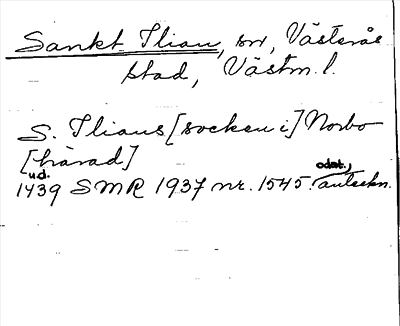 Sankt Ilian, sn, Västerås
stad, Västm. l.
S. Ilians [socken i] Norbo
[härad]
u.d. odat.,
1439 SMR 1937 nr. 1545. anteckn.